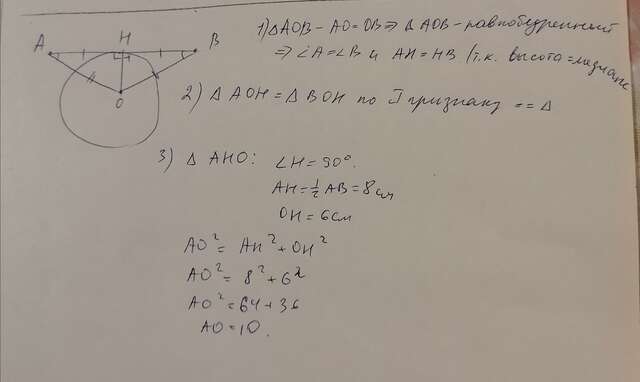 A H B
O
1) △AOB - AO=OB ⇒ △AOB - равнобедренный
⇒ ∠A=∠B и AH=HB (т.к. высота=медиане
2) △ AOH = △ BOH по I признаку == △
3) △ AHO: ∠H=90°.
AH=½AB=8см
OH=6см
AO²=AH²+OH²
AO²=8²+6²
AO²=64+36
AO=10.